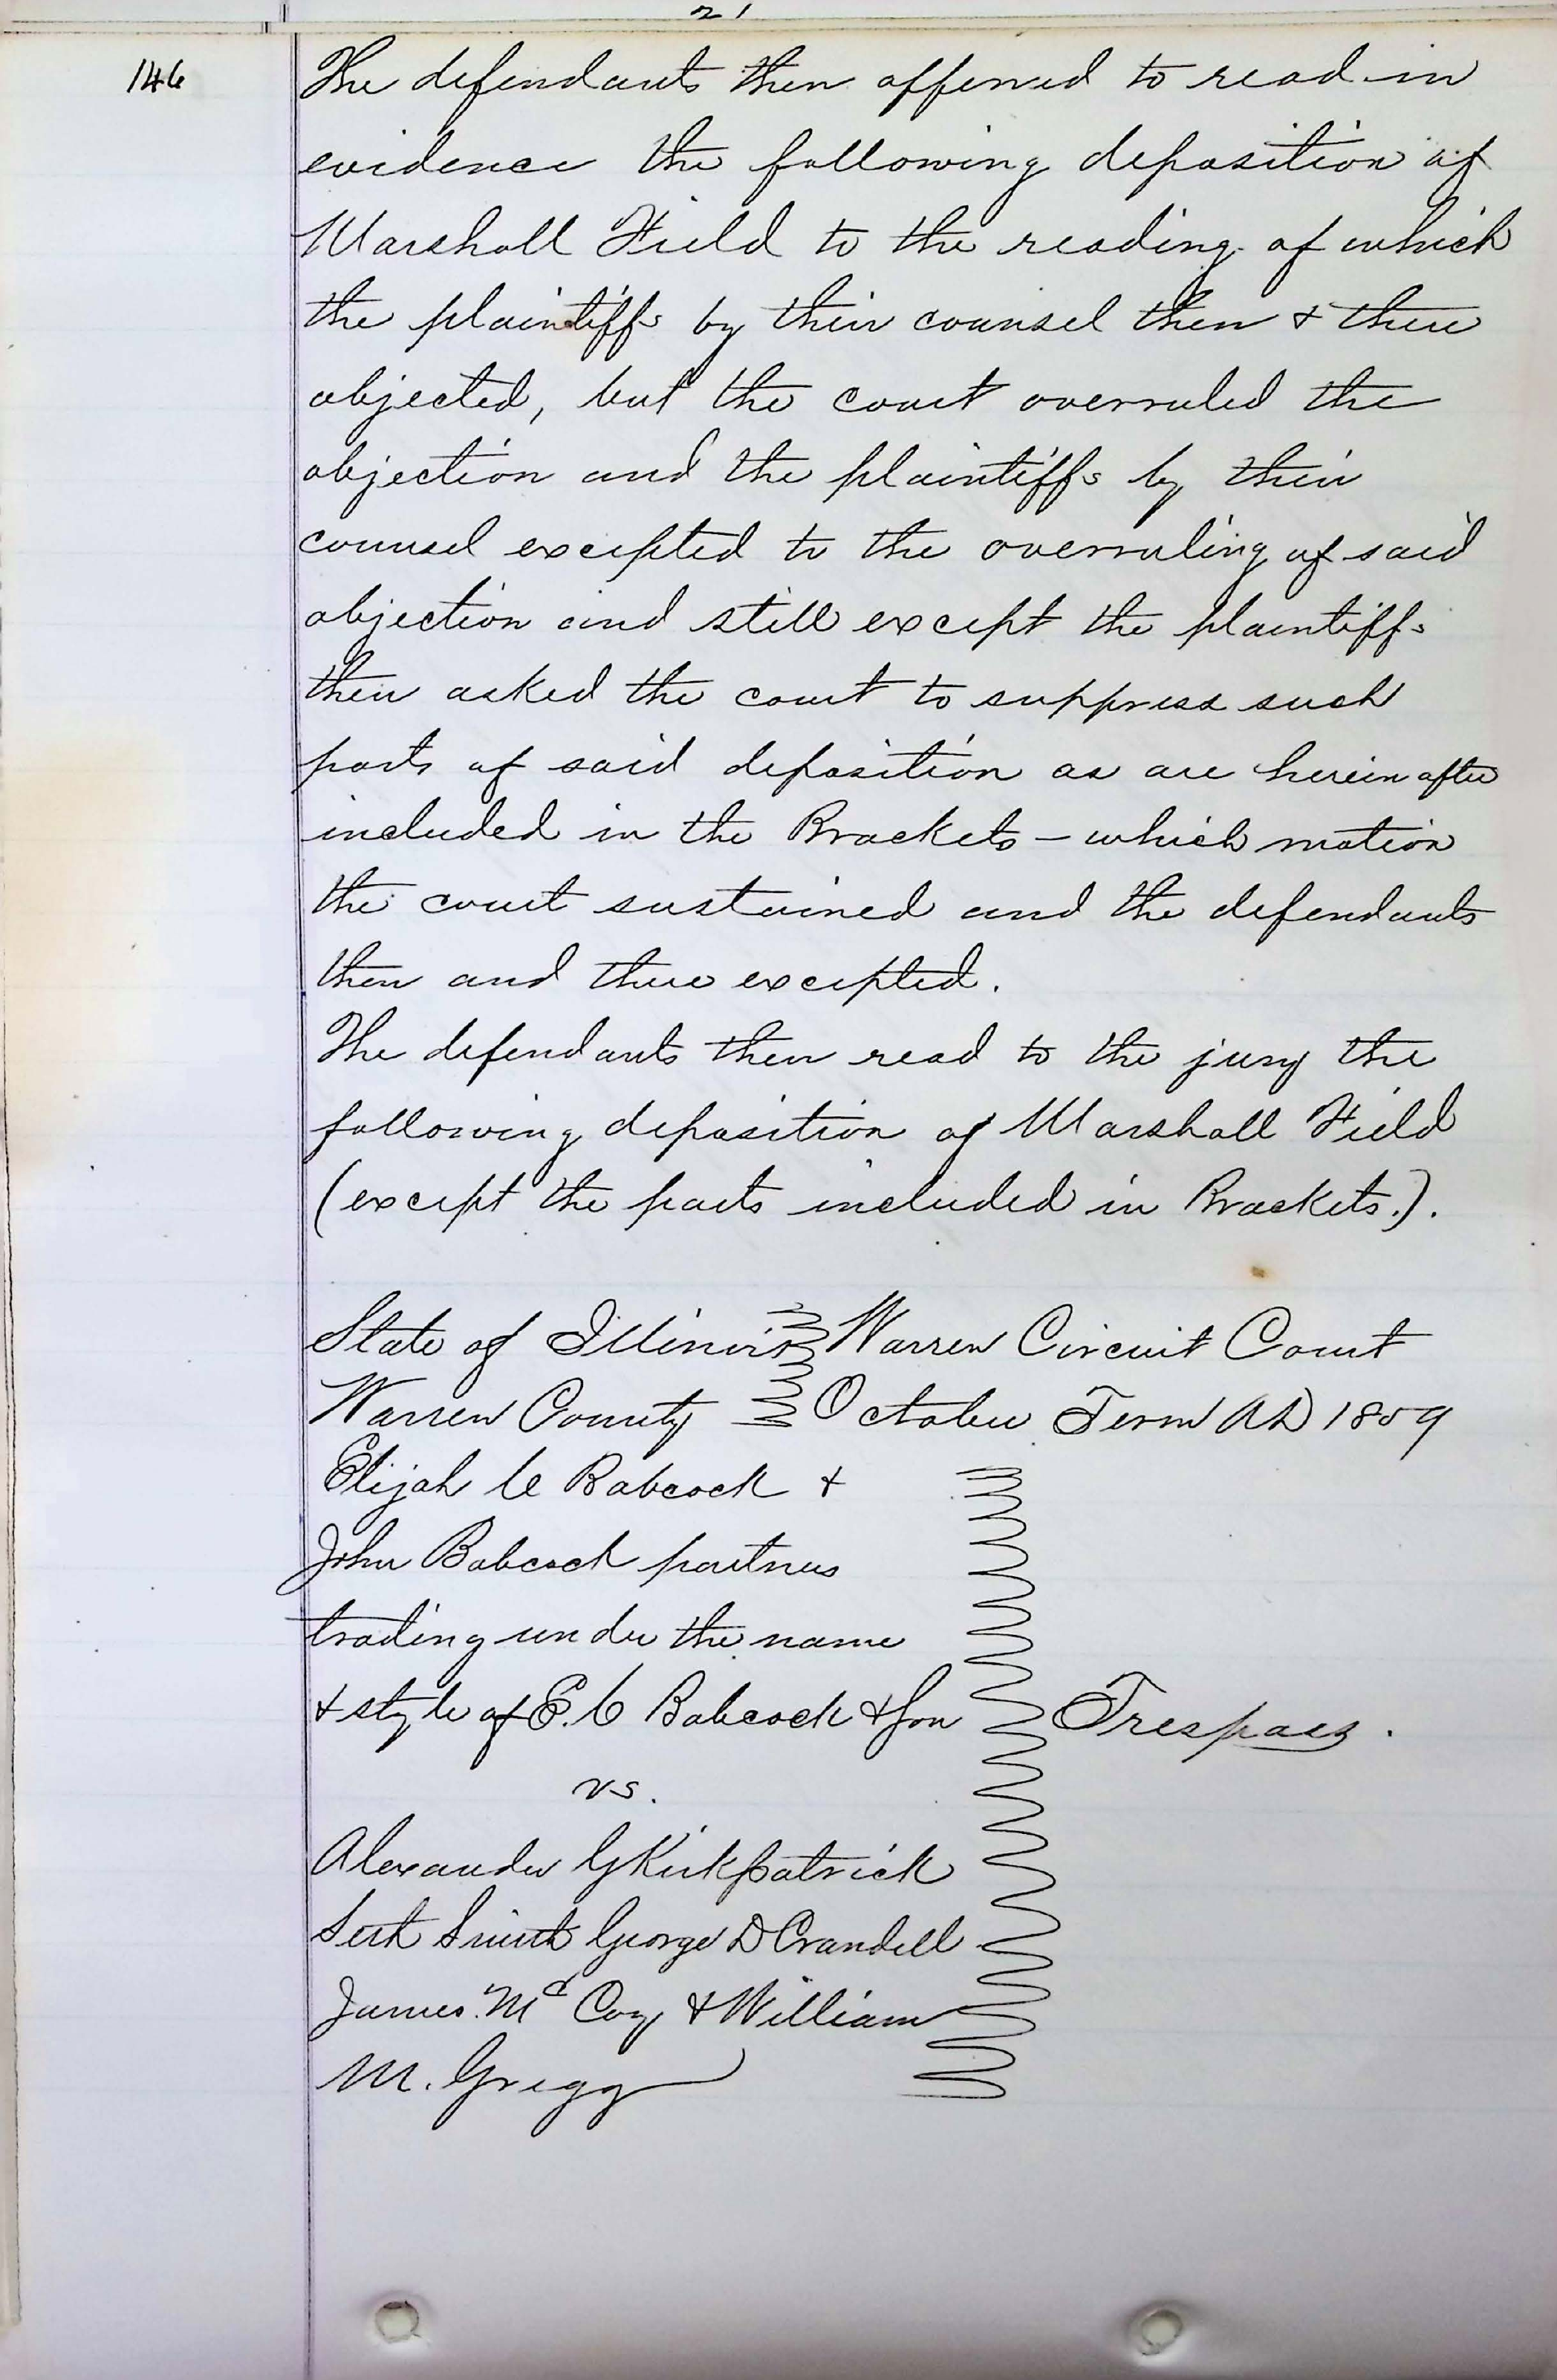 21
146
The defendants then offerred to read in
evidence the following deposition of
Marshall Field to the reading of which
the plaintiffs by their counsel then & there
objected, but the court overruled the
objection and the plaintiffs by their
counsel excepted to the overruling of said
objection and still except the plaintiffs
then asked the court to suppress such
parts of said deposition as are herein after
included in the Brackets - which motion
the court sustained and the defendants
then and there excepted.
The defendants then read to the jury the
following deposition of Marshall Field
(except the parts included in Brackets.).
State of Illinois Warren Circuit Court
Warren County October Term AD 1859
Elijah C Babcock &
John Babcock partners
trading under the name
& style of E. C Babcock & Son Trespass.
vs.
Alexander G Kirkpatrick
Seth Smith George D Crandell
James Mc Coy & William
M. Gregg